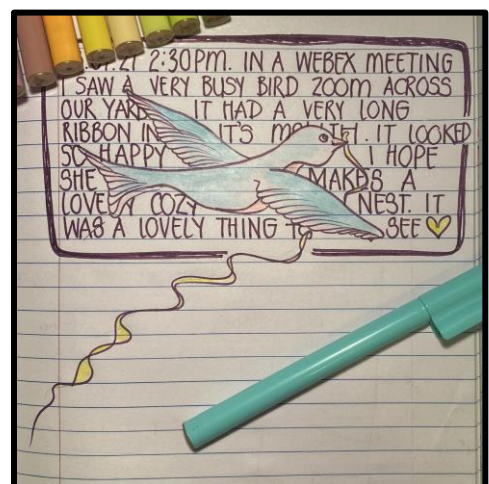 2:30PM. IN A WEBEX MEETING
I SAW A VERY BUSY BIRD ZOOM ACROSS
OUR YARD IT HAD A VERY LONG
RIBBON IN IT'S MOUTH. IT LOOKED
SO HAPPY I HOPE
SHE MAKES A
LOVELY COZY NEST. IT
WAS A LOVELY THING TO SEE